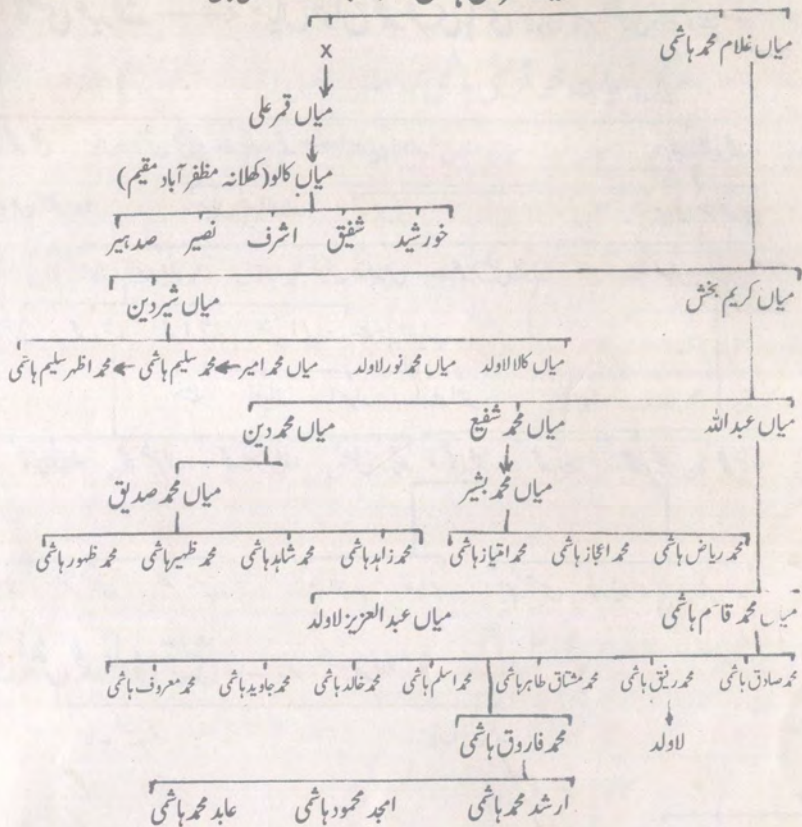 میاں غلام محمد ہاشمی
x
میاں قمر علی
میاں کالو (کھلانہ مظفر آباد مقیم)
خورشید شفیق اشرف نصیر صد ہیر
میاں کریم بخش میاں شیر دین
میاں کالا لاولد میاں محمد نور لاولد میاں محمد امیر محمد سلیم ہاشمی محمد اظہر سلیم ہاشمی
میاں عبد اللہ میاں محمد شفیع میاں محمد دین
میاں محمد بشیر میاں محمد صدیق
محمد ریاض ہاشمی محمد اعجاز ہاشمی محمد امتیاز ہاشمی محمد زاہد ہاشمی محمد شاہد ہاشمی محمد ظہیر ہاشمی محمد ظہور ہاشمی
میاں محمد قاسم ہاشمی میاں عبد العزیز لاولد
محمد صادق ہاشمی محمد رفیق ہاشمی محمد مشتاق طاہر ہاشمی محمد اسلم ہاشمی محمد خالد ہاشمی محمد جاوید ہاشمی محمد معروف ہاشمی
لاولد محمد فاروق ہاشمی
ارشد محمد ہاشمی امجد محمود ہاشمی عابد محمد ہاشمی